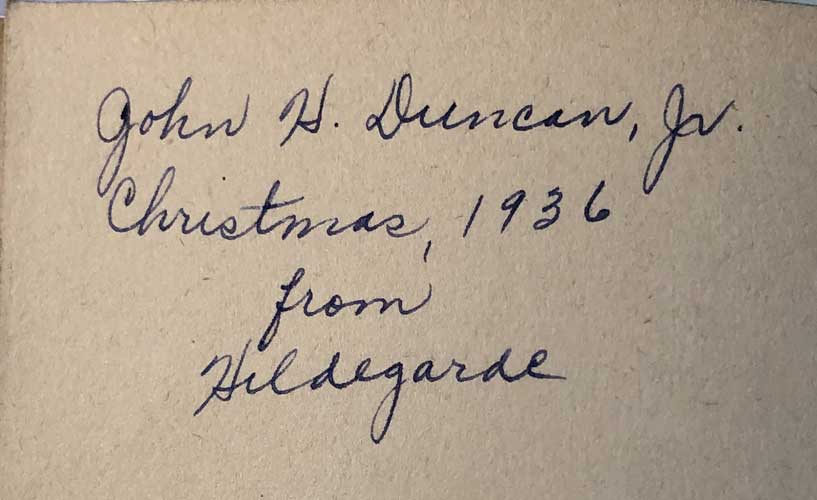 John H. Duncan, Jr.
Christmas, 1936
from
Hildegarde